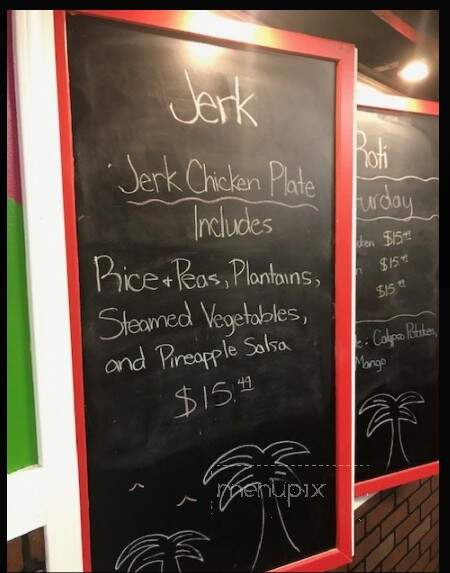 Jerk
Jerk Chicken Plate
Includes
Rice + Peas, Plantains,
Steamed Vegetables,
and Pineapple Salsa
$15.49
Roti
$15.49
$15.49
$15.49
Calypso Potatoes,
Mango
menupix